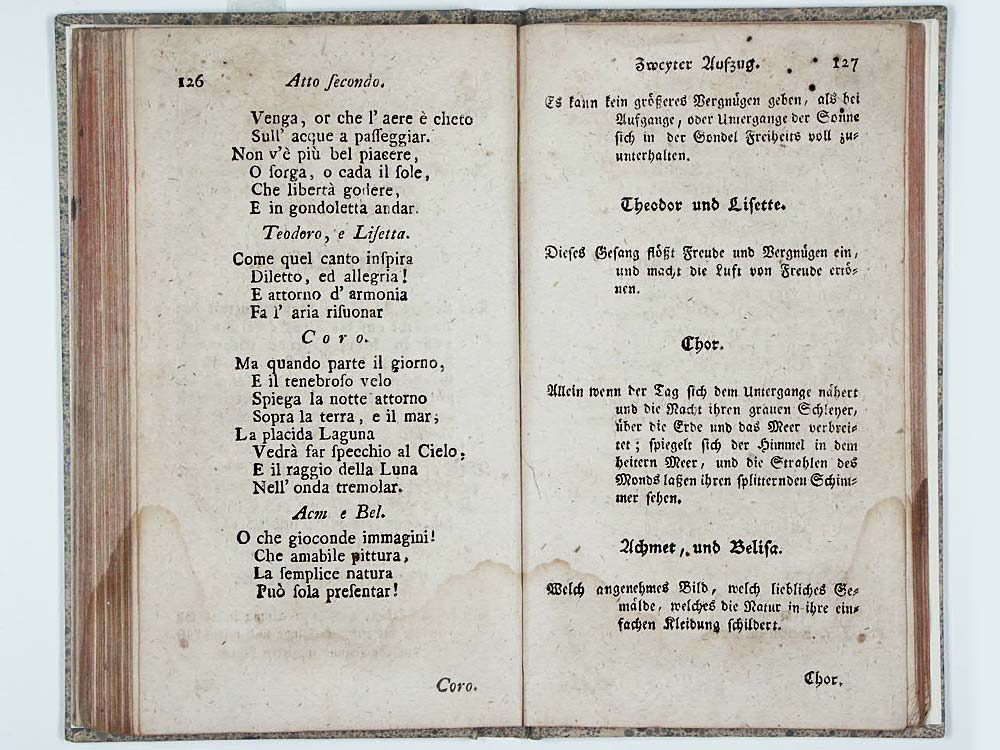 126 Atto ſecondo.
Venga, or che l' aere è cheto
Sull' acque a paſſeggiar.
Non v'è più bel piacere,
O ſorga, o cada il ſole,
Che libertà godere,
E in gondoletta andar.
Teodoro, e Liſetta.
Come quel canto inſpira
Diletto, ed allegria!
E attorno d' armonia
Fa l' aria riſuonar
Coro.
Ma quando parte il giorno,
E il tenebroſo velo
Spiega la notte attorno
Sopra la terra, e il mar;
La placida Laguna
Vedrà far ſpecchio al Cielo,
E il raggio della Luna
Nell' onda tremolar.
Acm e Bel.
O che gioconde immagini!
Che amabile pittura,
La ſemplice natura
Può ſola preſentar!
Coro.
Zweyter Aufzug. 127
Es kann kein größeres Vergnügen geben, als bei
Aufgange, oder Untergange der Sonne
ſich in der Gondel Freiheits voll zu-
unterhalten.
Theodor und Liſette.
Dieſes Geſang flößt Freude und Vergnügen ein,
und macht die Luft von Freude ertö-
nen.
Chor.
Allein wenn der Tag ſich dem Untergange nähert
und die Nacht ihren grauen Schleyer,
über die Erde und das Meer verbrei-
tet; ſpiegelt ſich der Himmel in dem
heitern Meer, und die Strahlen des
Monds laßen ihren ſplitternden Schim-
mer ſehen.
Achmet, und Beliſa.
Welch angenehmes Bild, welch liebliches Ge-
mälde, welches die Natur in ihre ein-
fachen Kleidung ſchildert.
Chor.